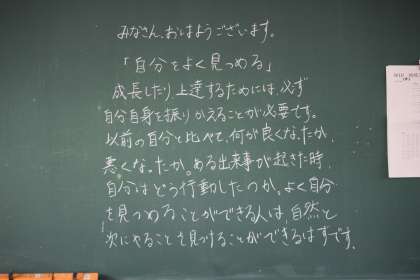 みなさん、おはようございます。
「自分をよく見つめる」
成長したり、上達するためには、必ず
自分自身を振りかえることが必要です。
以前の自分と比べて、何が良くなったか、
悪くなったか。ある出来事が起きた時、
自分はどう行動したのか。よく自分
を見つめることができる人は、自然と
次にやることを見つけることができるはずです。